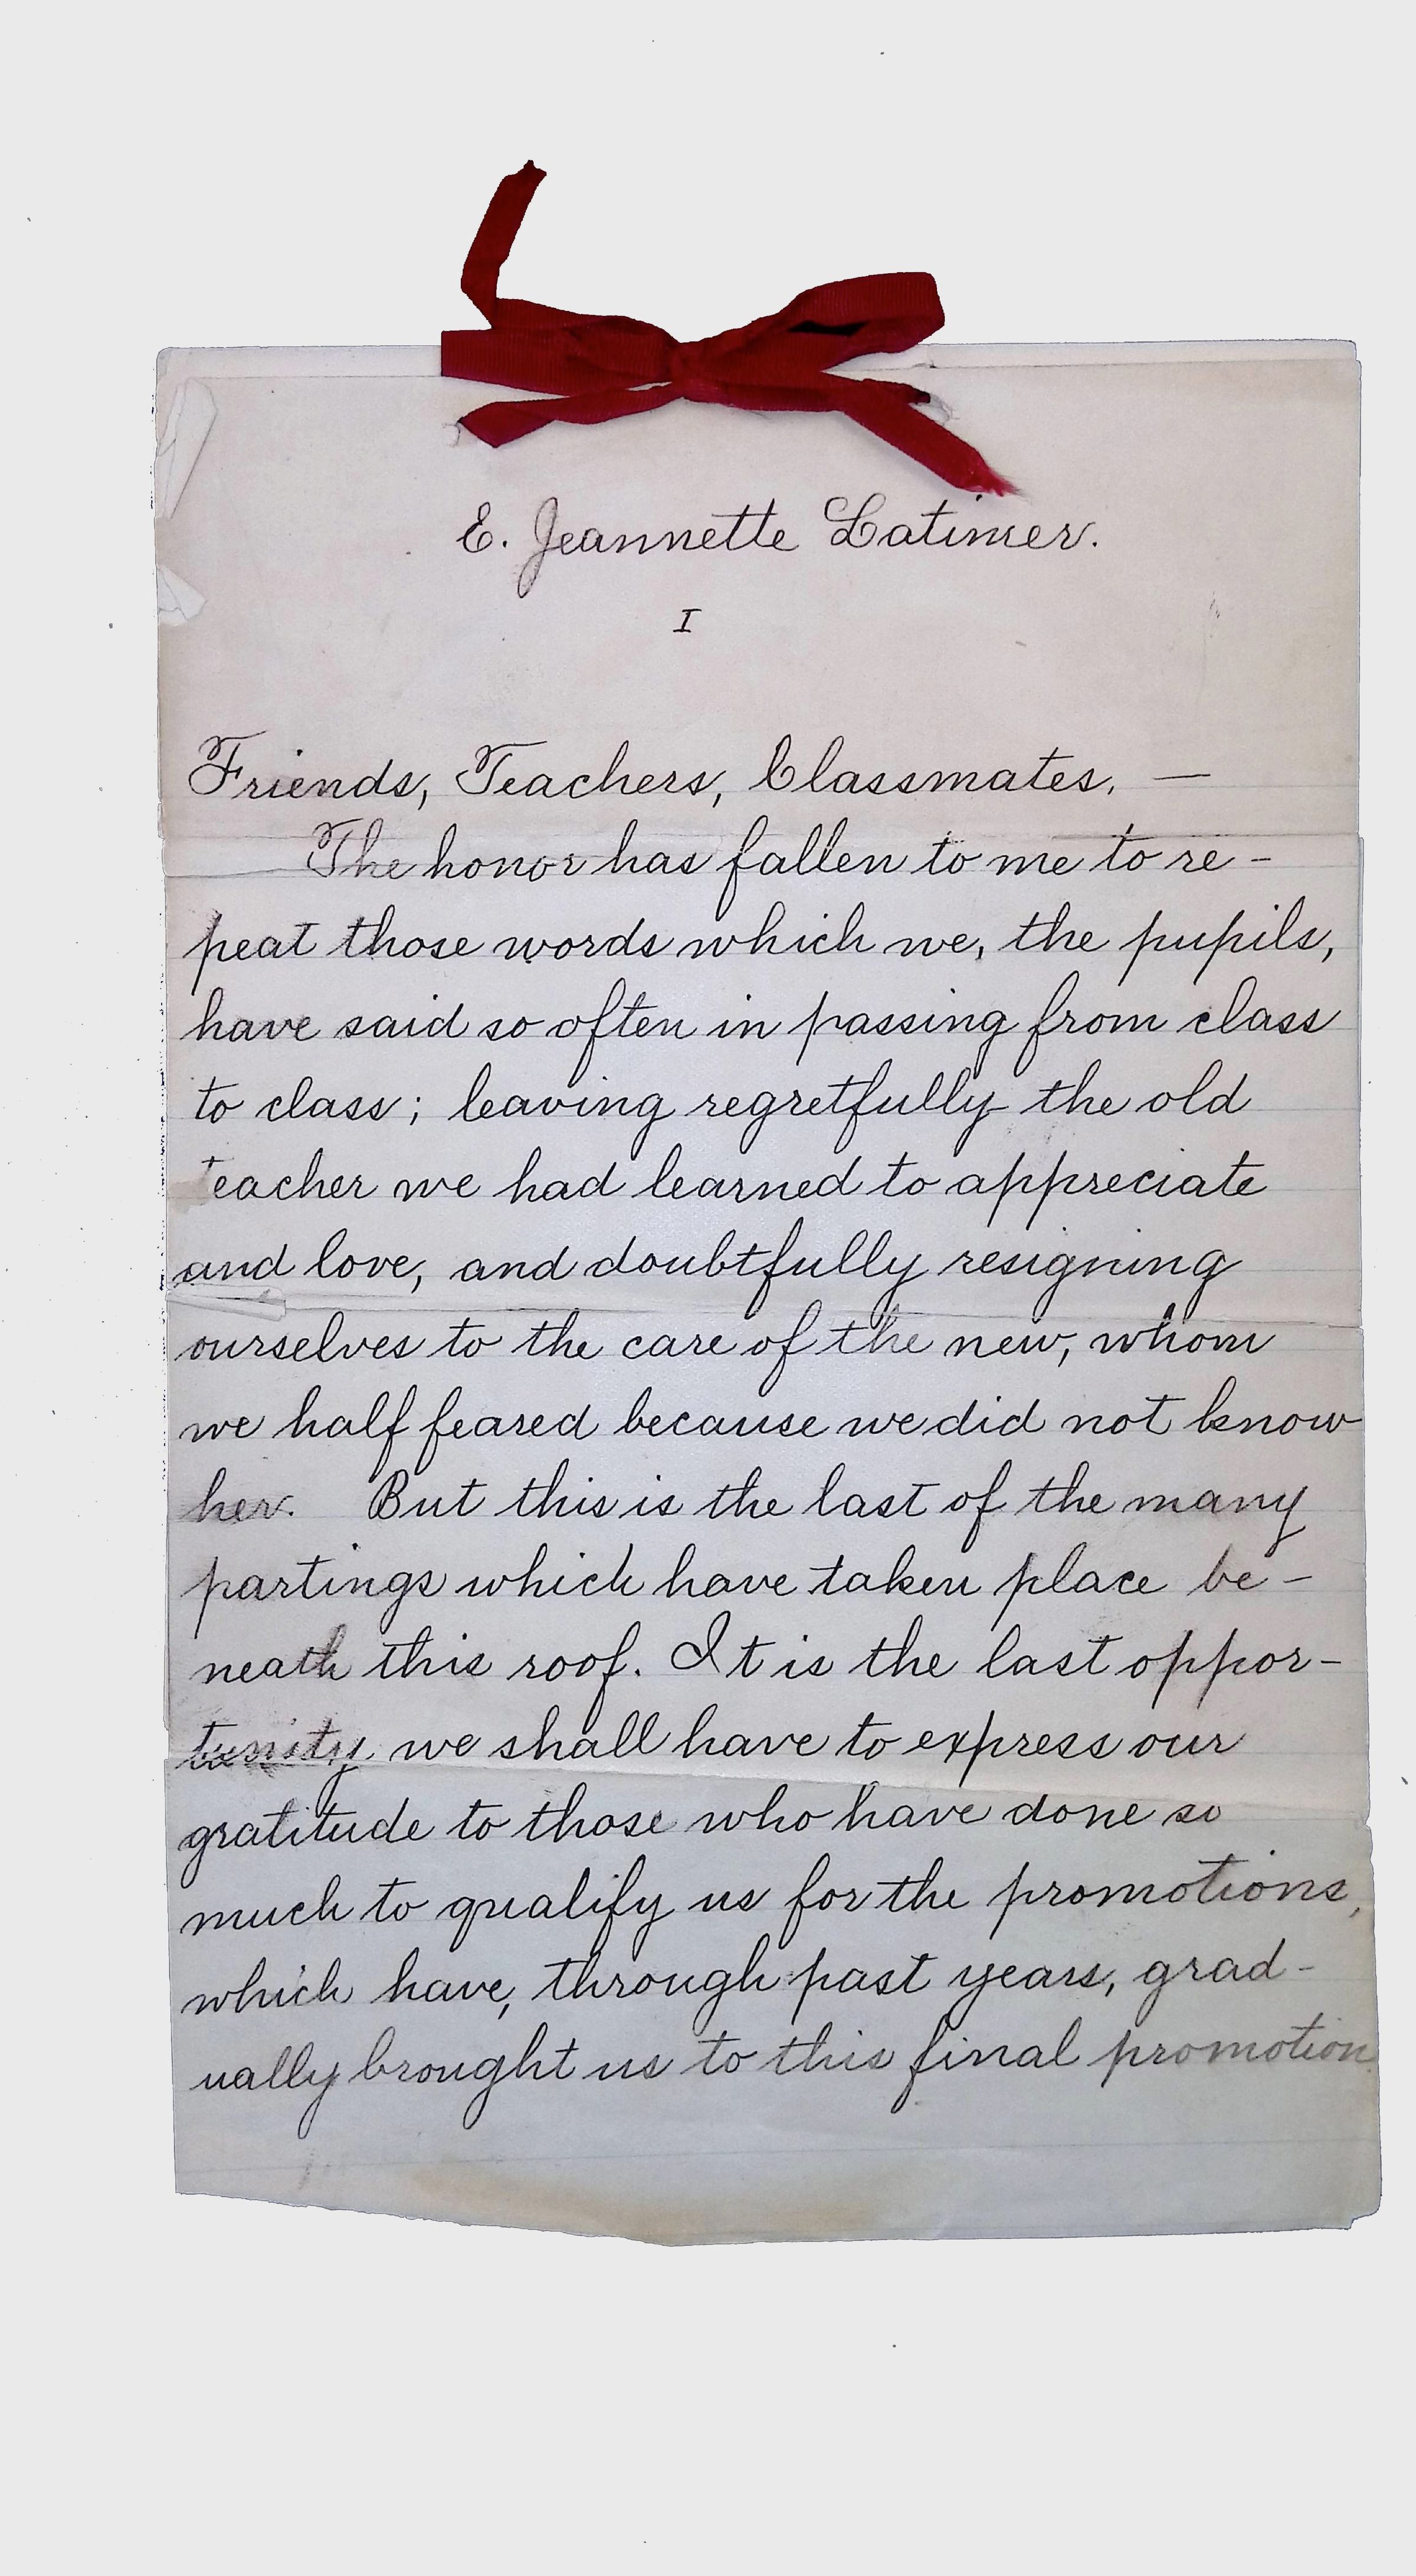 E. Jeannette Latimer.
I
Friends, Teachers, Classmates, —
The honor has fallen to me to re-
peat those words which we, the pupils,
have said so often in passing from class
to class; leaving regretfully the old
teacher we had learned to appreciate
and love, and doubtfully resigning
ourselves to the care of the new, whom
we half feared because we did not know
her. But this is the last of the many
partings which have taken place be-
neath this roof. It is the last oppor-
tunity we shall have to express our
gratitude to those who have done so
much to qualify us for the promotions,
which have, through past years, grad-
ually brought us to this final promotion.